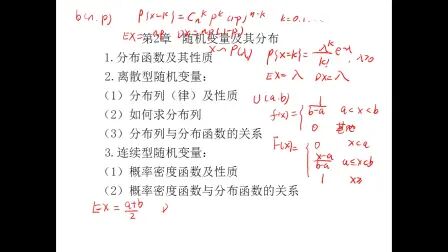 b(n.p) P{X=k}=C_n^k p^k (1-p)^{n-k} k=0.1.……
第2章 随机变量及其分布
EX=np DX=np(1-p)
X～P(λ) P{X=k}=λ^k/k! e^{-λ}, λ>0
1.分布函数及其性质
EX=λ DX=λ
2.离散型随机变量:
(1)分布列(律)及性质
U(a.b)
f(x)={ 1/(b-a) a<x<b
0 其他
(2)如何求分布列
(3)分布列与分布函数的关系
F(x)={ 0 x<a
(x-a)/(b-a) a≤x<b
1 x≥
3.连续型随机变量:
(1)概率密度函数及性质
(2)概率密度函数与分布函数的关系
EX=(a+b)/2